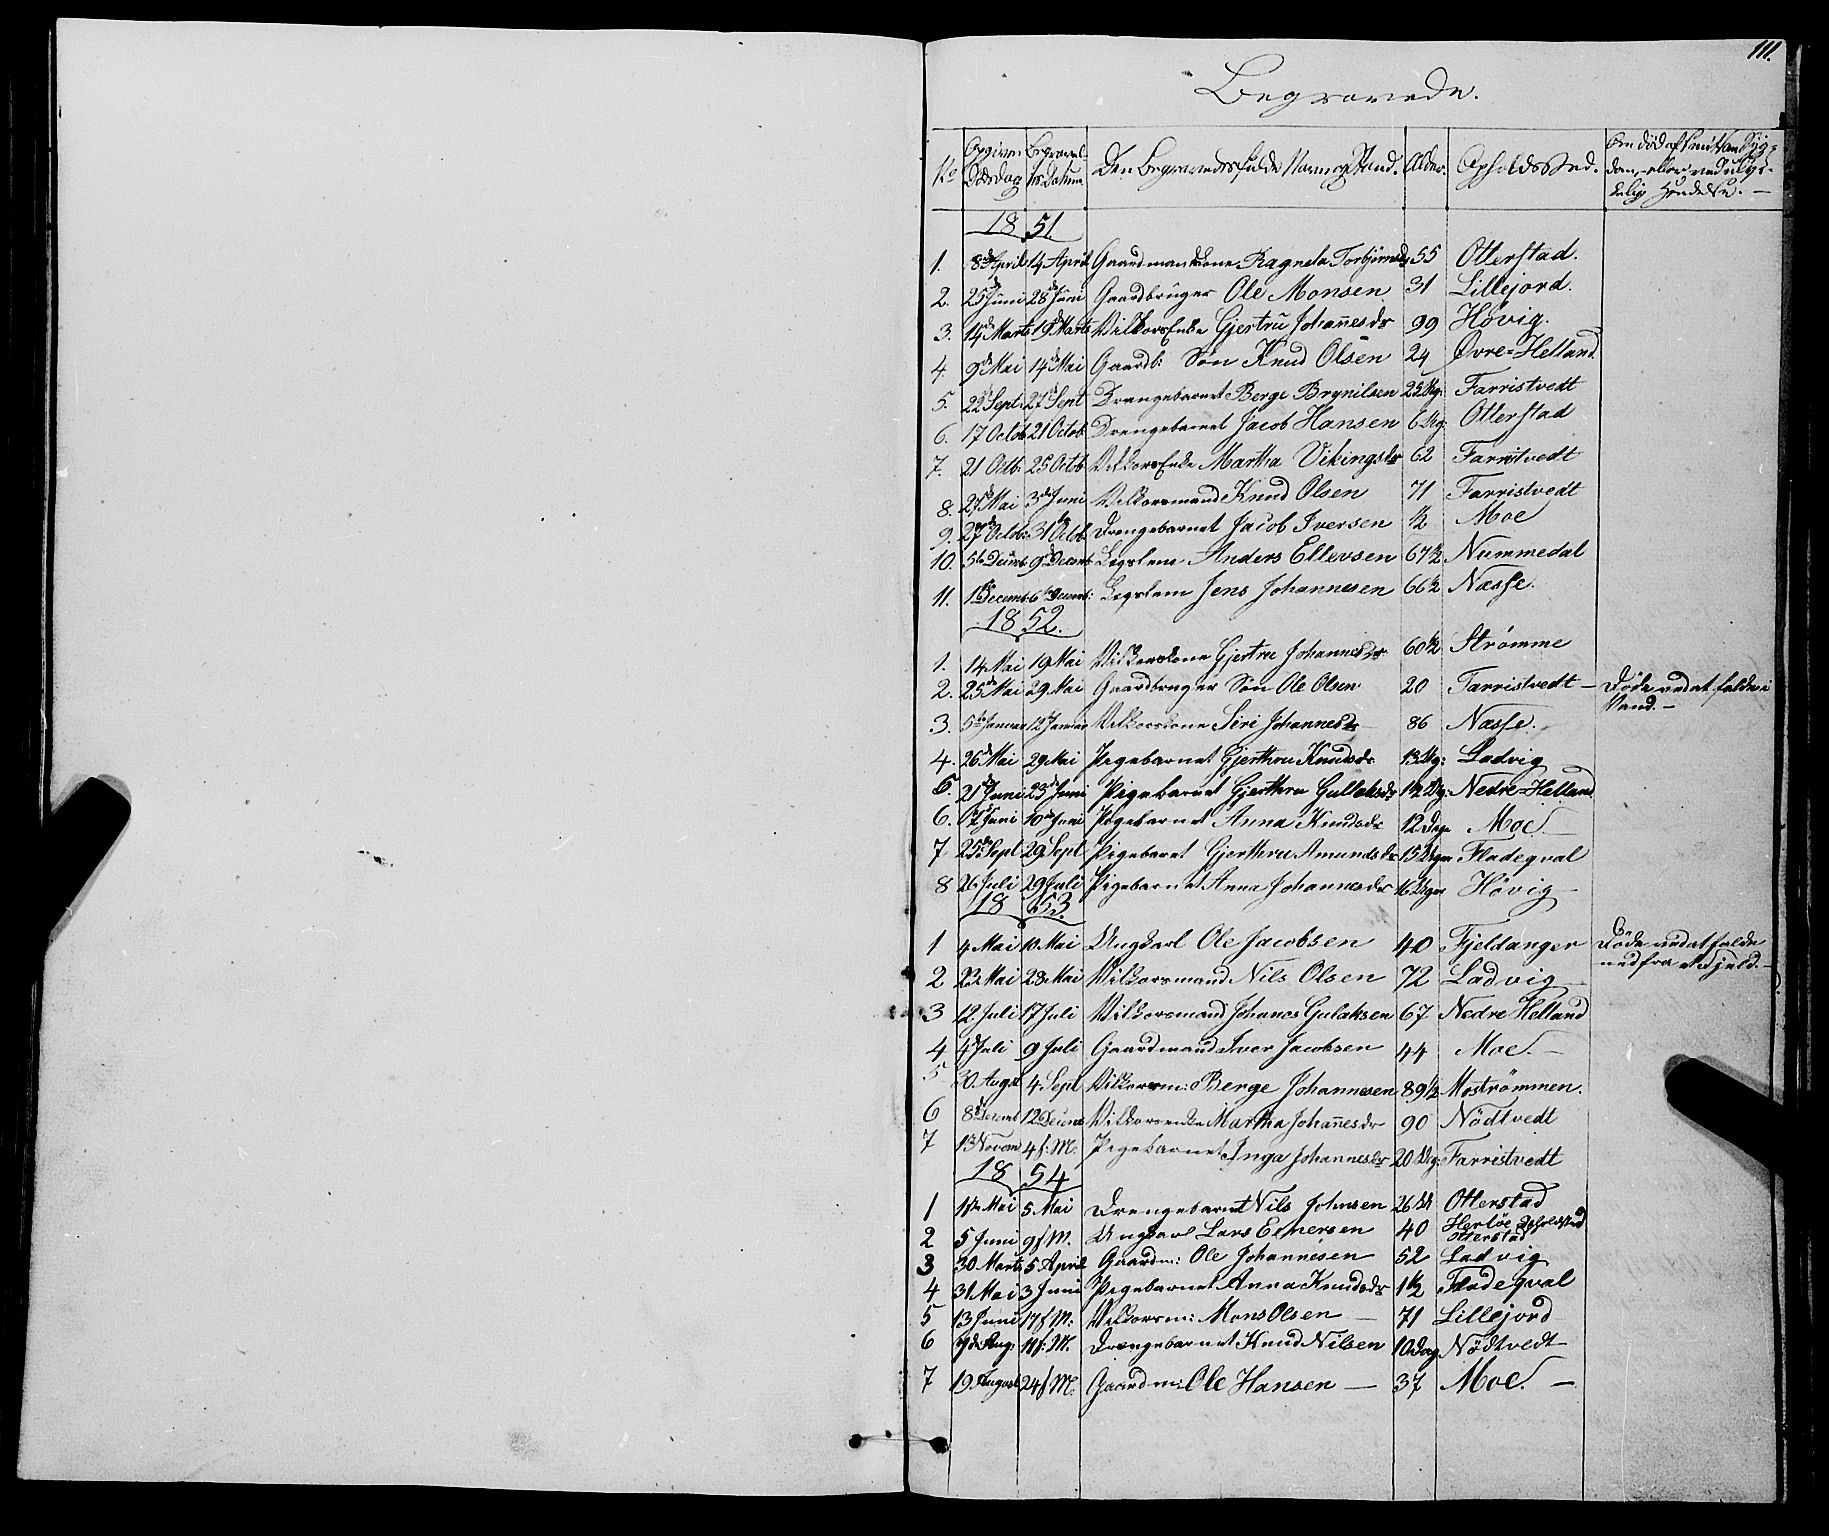 111.
Begravede.
No Opgiven Dödsdag Begravelses Datum Den Begravedes fulde Navn og Stand. Alder. Opholds Sted.
1851.
1. 8de April 14 April Gaardmandskone Ragnela Torbjörnsdr 55 Otterstad.
2. 25de Juni 28de Juni Gaardbruger Ole Monsen 31 Lillejord.
3. 14de Marts 19de Marts VilkorsEnke Gjertru Johañesdr 99 Hövig.
4. 9de Mai 14de Mai Gaardb: Sön Knud Olsen 24 Øvre=Helland
5. 22 Sept: 27 Sept Drengebarnet Berge Brynilsen 25 Dg: Farristvedt
6. 17 Octob 21 Octob. Drengebarnet Jacob Hansen 6 Dg Otterstad
7. 21 Octb: 25 Octb VilkorsEnke Martha Vikingsdr 62 Farristvedt
8. 27de Mai 3de Juni Vilkorsmand Knud Olsen 71 Farristvedt
9. 27de Octob: 31 Octb. Drengebarnet Jacob Iversen ½ Moe
10. 5te Decemb 9de Decemb Legslem Anders Ellevsen 67½ Nummedal
11. 1ste Decemb: 6te Decemb: Legslem Jens Johannesen 66½ Næsse.
1852.
1. 14 Mai 19 Mai Vilkorskone Gjertru Johannesdr 60½ Strømme
2. 25de Mai 29 Mai Gaardbruger Sön Ole Olsen 20 Farristvedt — Döde ved at falde i Vand. —
3. 5te Januar 12 Januar Vilkorskone Siri Johannesdr 86 Næsse.
4. 26de Mai 29 Mai Pigebarnet Gjerthru Knudsdr 13 Dg: Ladvig
5 21de Juni 25de Juni Pigebarnet Gjerthru Gullaksdr 1½ Dg: Nedre=Helland
6. 7de Juni 10de Juni Pigebarnet Anna Knudsdr 12 Dage Moe. —
7 25de Sept 29 Sept Pigebarnet Gjerthru Amundsdr 15 Dager Fladeqval
8 26 Juli 29 Juli Pigebarnet Anna Johannesdr 16 Dager Hövig —
1853.
1 4 Mai 10 Mai Ungkarl Ole Jacobsen 40 Fjeldanger Döde ved at falde ned fra et Fjeld. —
2 23 Mai 28 Mai Vilkorsmand Nils Olsen 72 Ladvig
3 12. Juli 17 Juli Vilkorsmand Johanes Gulaksen 67 Nedre Helland
4 4de Juli 9 Juli Gaardmand Iver Jacobsen 44 Moe. —
5 30. Augst 4 Sept Vilkorsm: Berge Johannesen 89½ Moströmmen.
6 8de Decemb 12 Decemb Vilkorsenke Martha Johañesdr 90 Nödtvedt
7 13 Novem 4 f: M: Pigebarnet Inga Johannesdr 20 Dg: Farristvedt
1854
1 1ste Mai 5 Mai Drengebarnet Nils Johnsen 26 Otterstad
2 5 Juni 9 f M. Ungkarl Lars Elnersen 40 Herlöe Otterstad
3 30 Marts 5 April Gaardm: Ole Johannesen 52 Ladvig
4 31 Mai 3 Juni Pigebarnet Anna Knudsdr 1½ Fladeqval
5 13 Juni 17 f M: Vilkorsm: Mons Olsen — 71 Lillejord
6 7de Aug: 11 f: M. Drengebarnet Knud Nilsen 10 Dag Nödtvedt
7 19. August 24 f M. Gaardm: Ole Hansen — 37 Moe. —